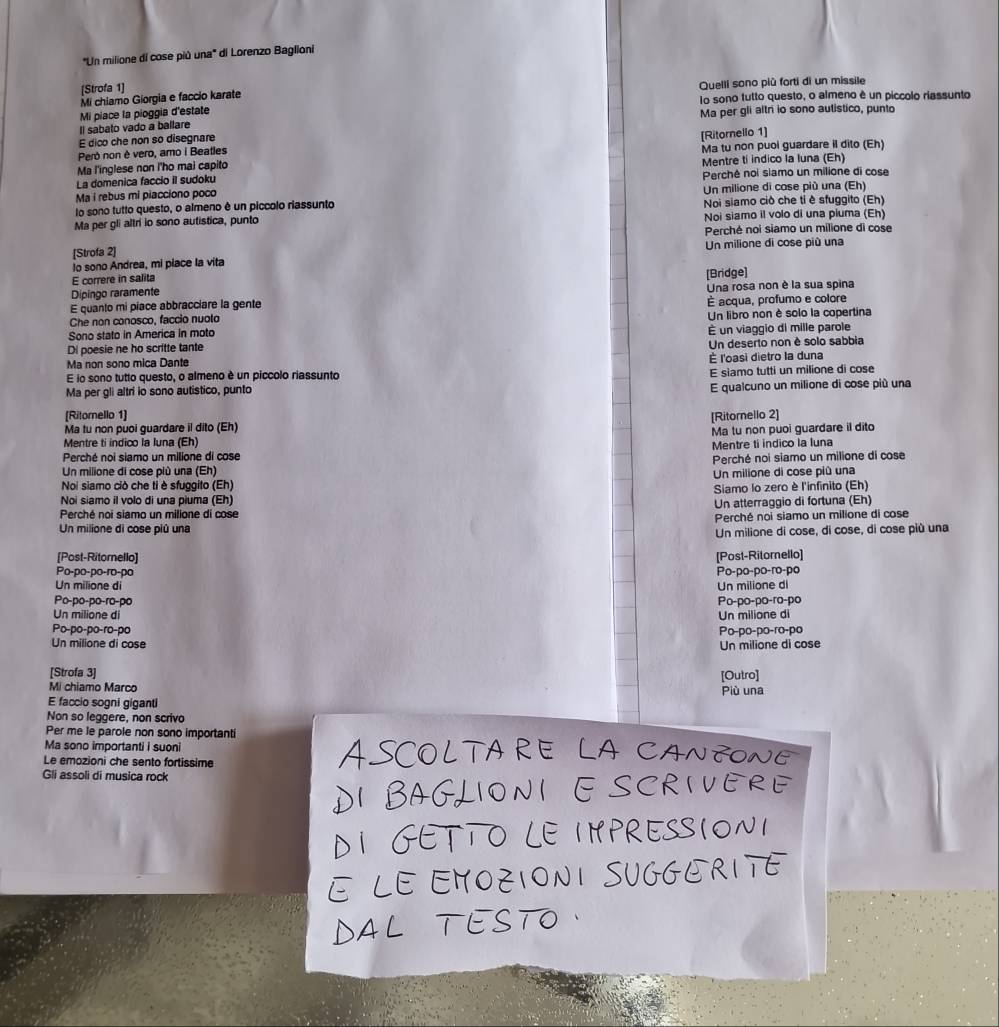 "Un milione di cose più una" di Lorenzo Baglioni
[Strofa 1]
Mi chiamo Giorgia e faccio karate
Mi piace la pioggia d'estate
Il sabato vado a ballare
E dico che non so disegnare
Però non è vero, amo i Beatles
Ma l'inglese non l'ho mai capito
La domenica faccio il sudoku
Ma i rebus mi piacciono poco
Io sono tutto questo, o almeno è un piccolo riassunto
Ma per gli altri io sono autistica, punto
[Strofa 2]
Io sono Andrea, mi piace la vita
E correre in salita
Dipingo raramente
E quanto mi piace abbracciare la gente
Che non conosco, faccio nuoto
Sono stato in America in moto
Di poesie ne ho scritte tante
Ma non sono mica Dante
E io sono tutto questo, o almeno è un piccolo riassunto
Ma per gli altri io sono autistico, punto
[Ritornello 1]
Ma tu non puoi guardare il dito (Eh)
Mentre ti indico la luna (Eh)
Perché noi siamo un milione di cose
Un milione di cose più una (Eh)
Noi siamo ciò che ti è sfuggito (Eh)
Noi siamo il volo di una piuma (Eh)
Perché noi siamo un milione di cose
Un milione di cose più una
[Post-Ritornello]
Po-po-po-ro-po
Un milione di
Po-po-po-ro-po
Un milione di
Po-po-po-ro-po
Un milione di cose
[Strofa 3]
Mi chiamo Marco
E faccio sogni giganti
Non so leggere, non scrivo
Per me le parole non sono importanti
Ma sono importanti i suoni
Le emozioni che sento fortissime
Gli assoli di musica rock
Quelli sono più forti di un missile
Io sono tutto questo, o almeno è un piccolo riassunto
Ma per gli altri io sono autistico, punto
[Ritornello 1]
Ma tu non puoi guardare il dito (Eh)
Mentre ti indico la luna (Eh)
Perché noi siamo un milione di cose
Un milione di cose più una (Eh)
Noi siamo ciò che ti è sfuggito (Eh)
Noi siamo il volo di una piuma (Eh)
Perché noi siamo un milione di cose
Un milione di cose più una
[Bridge]
Una rosa non è la sua spina
È acqua, profumo e colore
Un libro non è solo la copertina
È un viaggio di mille parole
Un deserto non è solo sabbia
È l'oasi dietro la duna
E siamo tutti un milione di cose
E qualcuno un milione di cose più una
[Ritornello 2]
Ma tu non puoi guardare il dito
Mentre ti indico la luna
Perché noi siamo un milione di cose
Un milione di cose più una
Siamo lo zero è l'infinito (Eh)
Un atterraggio di fortuna (Eh)
Perché noi siamo un milione di cose
Un milione di cose, di cose, di cose più una
[Post-Ritornello]
Po-po-po-ro-po
Un milione di
Po-po-po-ro-po
Un milione di
Po-po-po-ro-po
Un milione di cose
[Outro]
Più una
ASCOLTARE LA CANZONE
DI BAGLIONI E SCRIVERE
DI GETTO LE IMPRESSIONI
E LE EMOZIONI SUGGERITE
DAL TESTO.